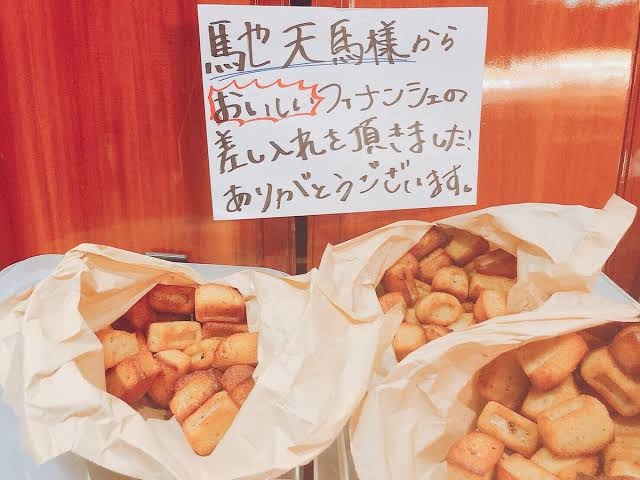 馳天馬様から
おいしいフィナンシェの
差し入れを頂きました!
ありがとうございます。